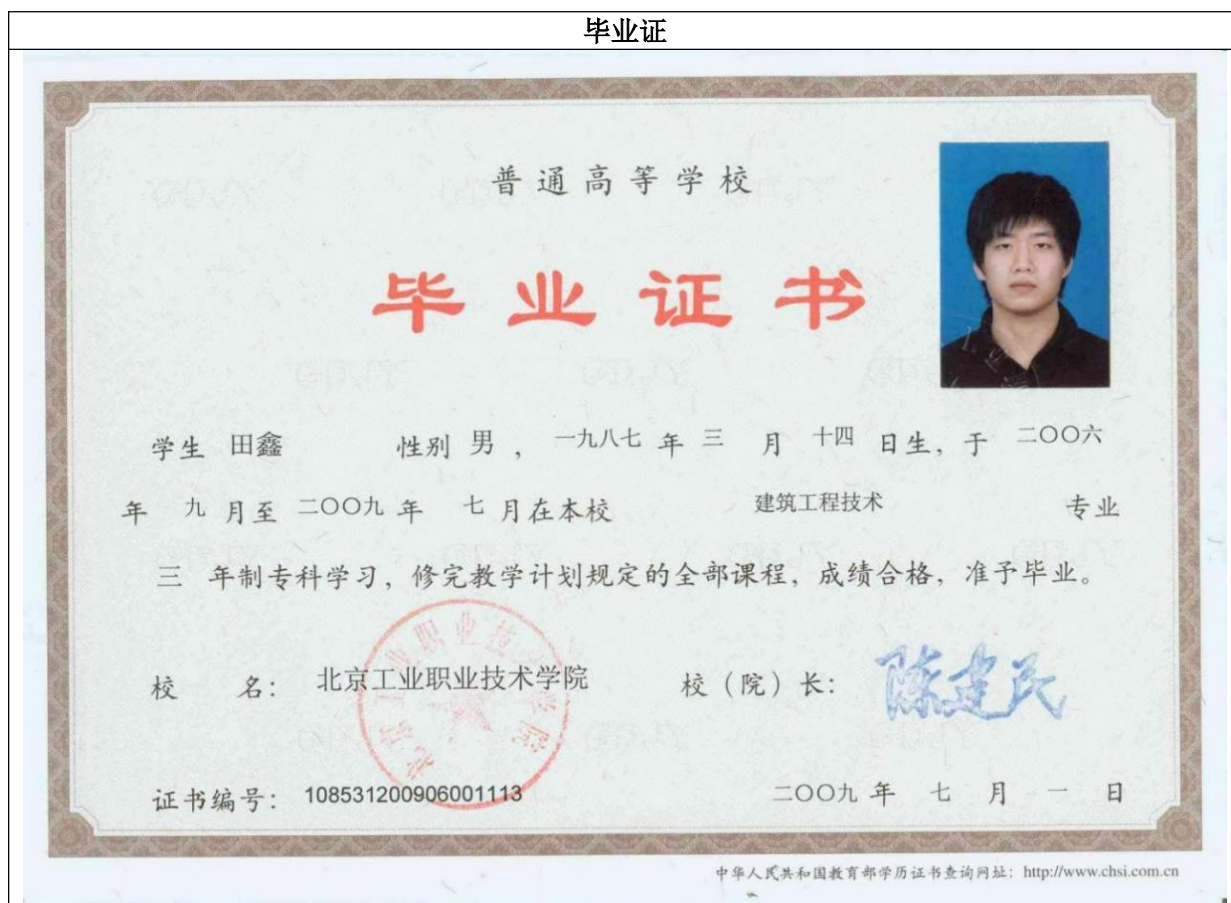 毕业证
普通高等学校
毕业证书
学生 田鑫 性别 男 , 一九八七 年 三 月 十四 日生, 于 二〇〇六
年 九 月至 二〇〇九 年 七 月在本校 建筑工程技术 专业
三 年制专科学习, 修完教学计划规定的全部课程, 成绩合格, 准予毕业。
校 名: 北京工业职业技术学院 校（院）长: 陈建民
北京工业职业技术学院
证书编号: 108531200906001113 二〇〇九 年 七 月 一 日
中华人民共和国教育部学历证书查询网址: http://www.chsi.com.cn